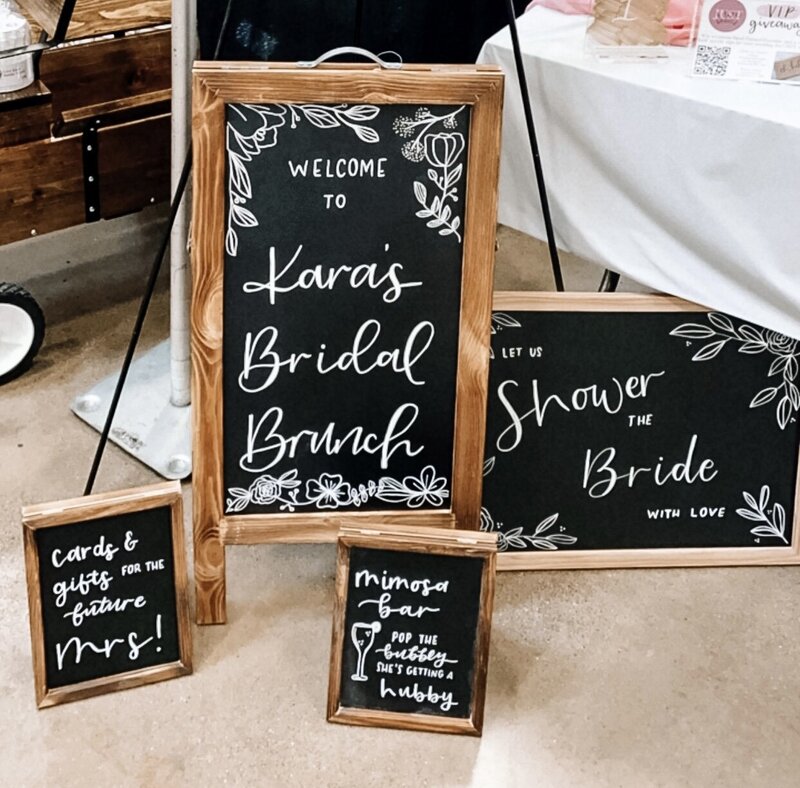 WELCOME
TO
Kara's
Bridal
Brunch
LET US
Shower
THE
Bride
WITH LOVE
cards &
gifts FOR THE
future
mrs!
mimosa
bar
POP THE
bubbly
SHE'S GETTING A
hubby
VIP
giveaway